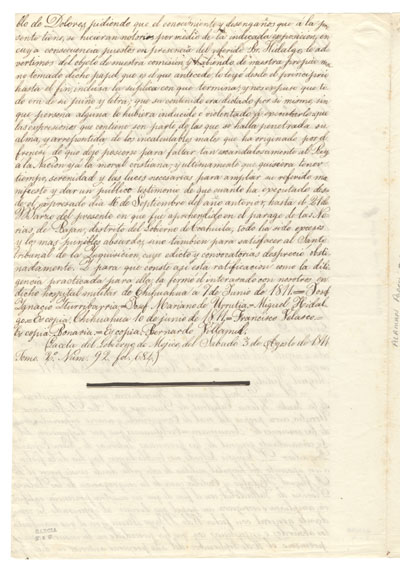 blo de Dolores pidiendo que el conocimiento y desengaños que á la pre
sente tiene, se hicieran notorios por medio de la indicada separacion, en
cuya consecuencia puesto en presencia del referido Sr. Hidalgo, le ad
vertimos del objeto de nuestra comision y habiendo de nuestra propia ma
no tomado dicho papel que es el que antecede, lo leyó desde el principio
hasta el fin, inclusa la súplica con que termina; y nos espuso que to
do era de su puño y letra; que su contenido era dictado por sí mismo, sin
que persona alguna le hubiera inducido ó violentado; que
las expresiones que contiene son parte de las que se halla penetrada su
alma, y arrepentido de los incalculables males que ha originado por el
frenesí de que dejó poseerse para faltar tan escandalosamente al Rey,
á la Nacion y á la moral cristiana; y ultimamente que quisiera tener
tiempo, serenidad y las luces necesarias para ampliar su referido ma
nifiesto y dar un público testimonio de que cuanto ha ejecutado des
de el espresado dia 16 de Septiembre del año anterior, hasta el 21 de
Marzo del presente en que fué aprehendido en el parage de las No
rias de Bajan, distrito del Gobierno de Coahuila, todo ha sido excesos,
y los mas punibles absurdos; sino tambien para satisfacer al Santo
tribunal de la Inquisicion, cuyo edicto y convocatorias despreció obsti
nadamente. Y para que conste asi esta ratificacion como la dili
gencia practicada para ella, la firmó el interesado con nosotros en
dicho hospital militar de Chihuahua á 7 de Junio de 1811.=José
Ignacio Iturribarria.=José Mariano de Urrutia.=Miguel Hidal
go.=Es copia. Chihuahua 10 de junio de 1811.=Francisco Velasco.=
Es copia. Bonavia.=Es copia. Bernardo Villamil.
Gaceta del Gobierno de Mejico del Sabado 3 de Agosto de 1811
Tomo 2º Núm. 92. fol. 684.)